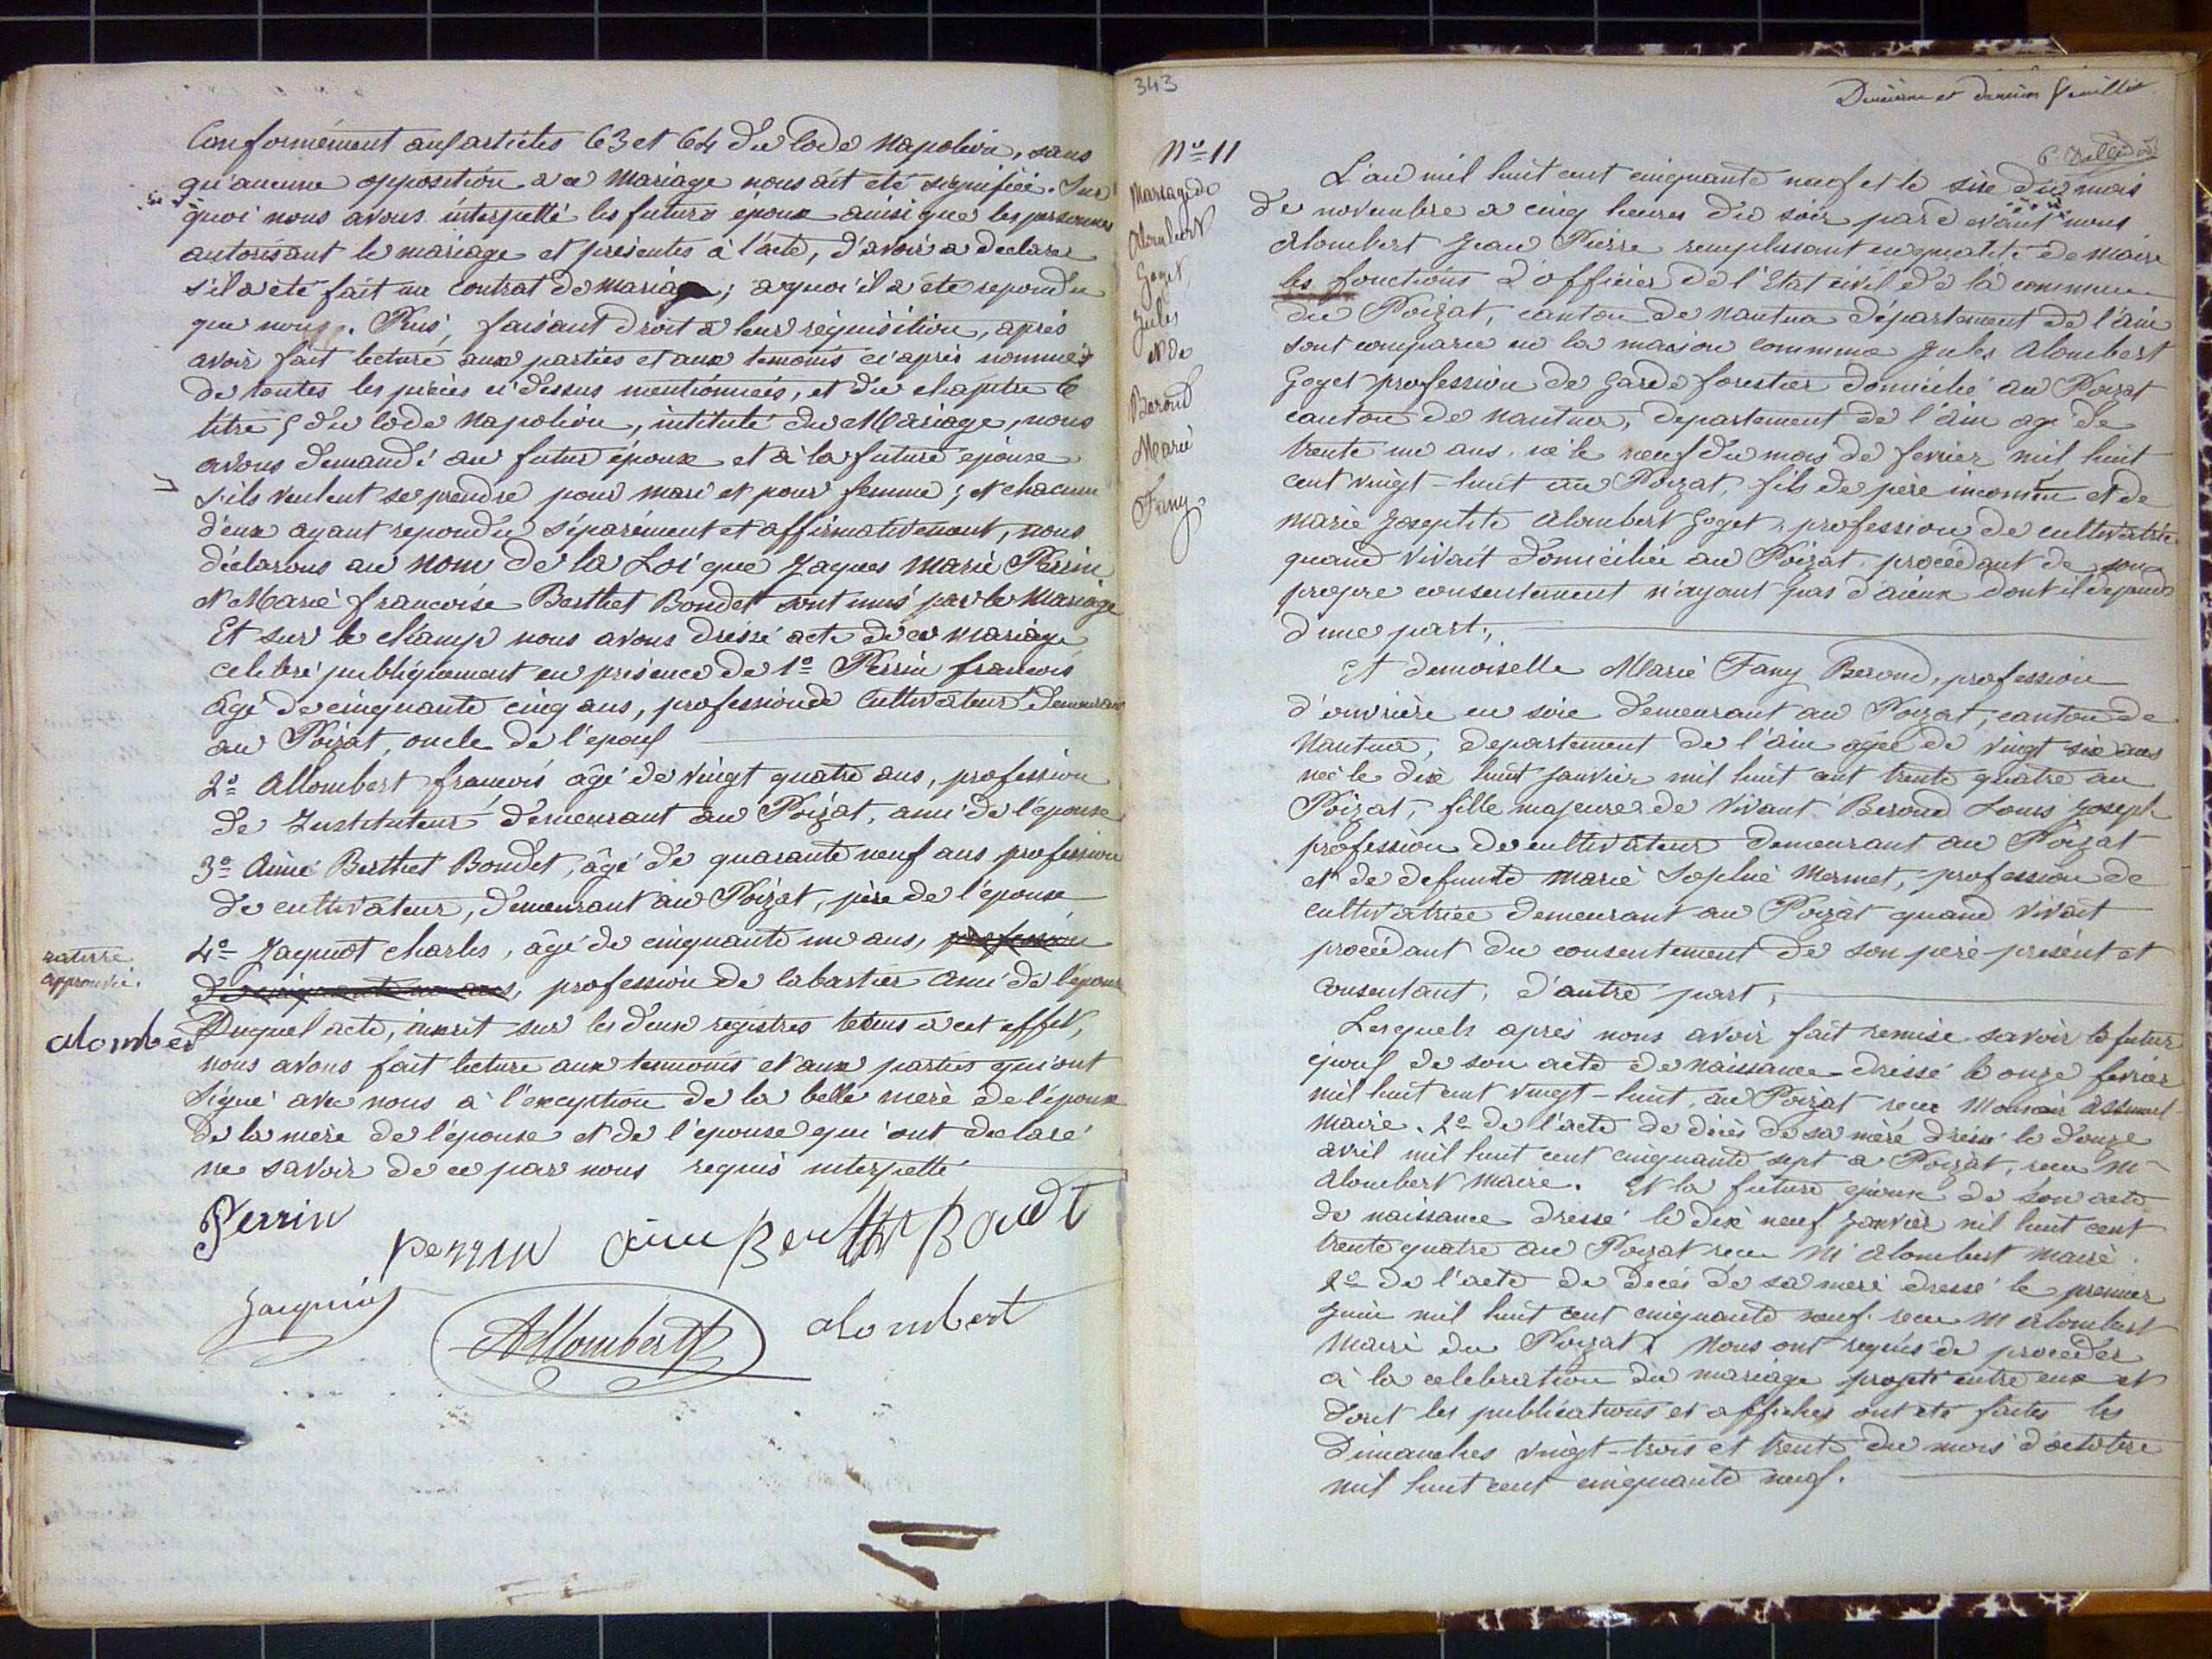 Conformément aux articles 63 et 64 du Code Napoléon, sans
qu'aucune opposition a ce Mariage nous ait été signifiée. Sur
quoi nous avons interpellé les futurs époux ainsi que les personnes
autorisant le mariage et présentes à l'acte, d'avoir a declarer
s'il a été fait un Contrat de Mariage; a quoi il a été repondu
que non. Puis, faisant droit a leur réquisition, après
avoir fait lecture aux parties et aux temoins ci après nommés
de toutes les pièces ci dessus mentionnées, et du chapitre 6
titre 5 du Code Napoléon, intitulé du Mariage, nous
avons demandé au futur époux et à la future épouse
s'ils veulent se prendre pour mari et pour femme; et chacun
d'eux ayant repondu séparément et affirmativement, nous
déclarons au nom de la Loi que Jaques Marie Perrin
et Marie francoise Berthet Bondet sont unis par le Mariage
Et sur le champ nous avons dressé acte de ce mariage
celebré publiquement en présence de 1º Perrin francois
âgé de cinquante cinq ans, profession de Cultivateur demeurant
au Poizat, oncle de l'epoux
2º Allombert francois âgé de vingt quatre ans, profession
de Instituteur demeurant au Poizat, ami de l'épouse
3º Aimé Berthet Bondet, âgé de quarante neuf ans profession
de cultivateur, demeurant au Poizat, père de l'épouse
4º Jaquiot Charles, âgé de cinquante un ans, profession
de cinquante un ans, profession de cabartier ami de l'époux
rature
approuvée.
alombert
Duquel acte, inscrit sur les deux registres tenus a cet effet,
nous avons fait lecture aux temoins et aux parties qui ont
signé avec nous à l'exception de la belle mère de l'époux
de la mère de l'épouse et de l'épouse qui ont declaré
ne savoir de ce par nous requis interpellé
Perrin
perrin aime Berthet Bondet
Jaquiot
Allombert
alombert
343
Deuxieme et dernier feuillet
Nº 11
Mariage de
Alombert
Goget
Jules
et de
Beroud
Marie
Fany
L'an mil huit cent cinquante neuf et le six du mois
de novembre a cinq heures du soir par devant nous
Alombert Jean Pierre remplissant en qualité de Maire
les fonctions d'officier de l'Etat civil de la commune
du Poizat, canton de Nantua département de l'ain
sont comparu en la maison commune Jules Alombert
Goget profession de Garde forestier domicilié au Poizat
canton de Nantua, departement de l'ain agé de
trente un ans. né le neuf du mois de fevrier mil huit
cent vingt-huit au Poizat, fils de père inconnu et de
Marie Josephte Alombert Goget, profession de cultivatrice
quand vivait domiciliée au Poizat, procédant de son
propre consentement n'ayant pas d'aieux dont il dépende
d'une part;
Et demoiselle Marie Fany Beroud, profession
d'ouvrière en soie demeurant au Poizat, canton de
Nantua, departement de l'ain agée de vingt six ans
née le dix huit Janvier mil huit cent trente quatre au
Poizat, fille majeure de vivant Beroud Louis Joseph
profession de cultivateur demeurant au Poizat
et de defunte Marie Sophie Mermet, profession de
cultivatrice demeurant au Poizat quand vivait
procédant du consentement de son père présent et
Consentant, d'autre part,
Lesquels après nous avoir fait remise savoir le futur
époux de son acte de naissance dressé le onze fevrier
mil huit cent vingt-huit, au Poizat recu
Maire. 2º de l'acte de décès de sa mère dressé le douze
avril mil huit cent cinquante sept a Poizat, recu Mr
Alombert Maire. Et la future épouse de son acte
de naissance dressé le dix neuf Janvier mil huit cent
trente quatre au Poizat recu Mr Alombert Maire.
2º de l'acte de décès de sa mère dressé le premier
Juin mil huit cent cinquante neuf. recu Mr Alombert
Maire du Poizat. Nous ont requis de proceder
à la celebration du mariage projeté entre eux et
dont les publications et affiches ont été faites les
Dimanches vingt-trois et trente du mois d'octobre
mil huit cent cinquante neuf.